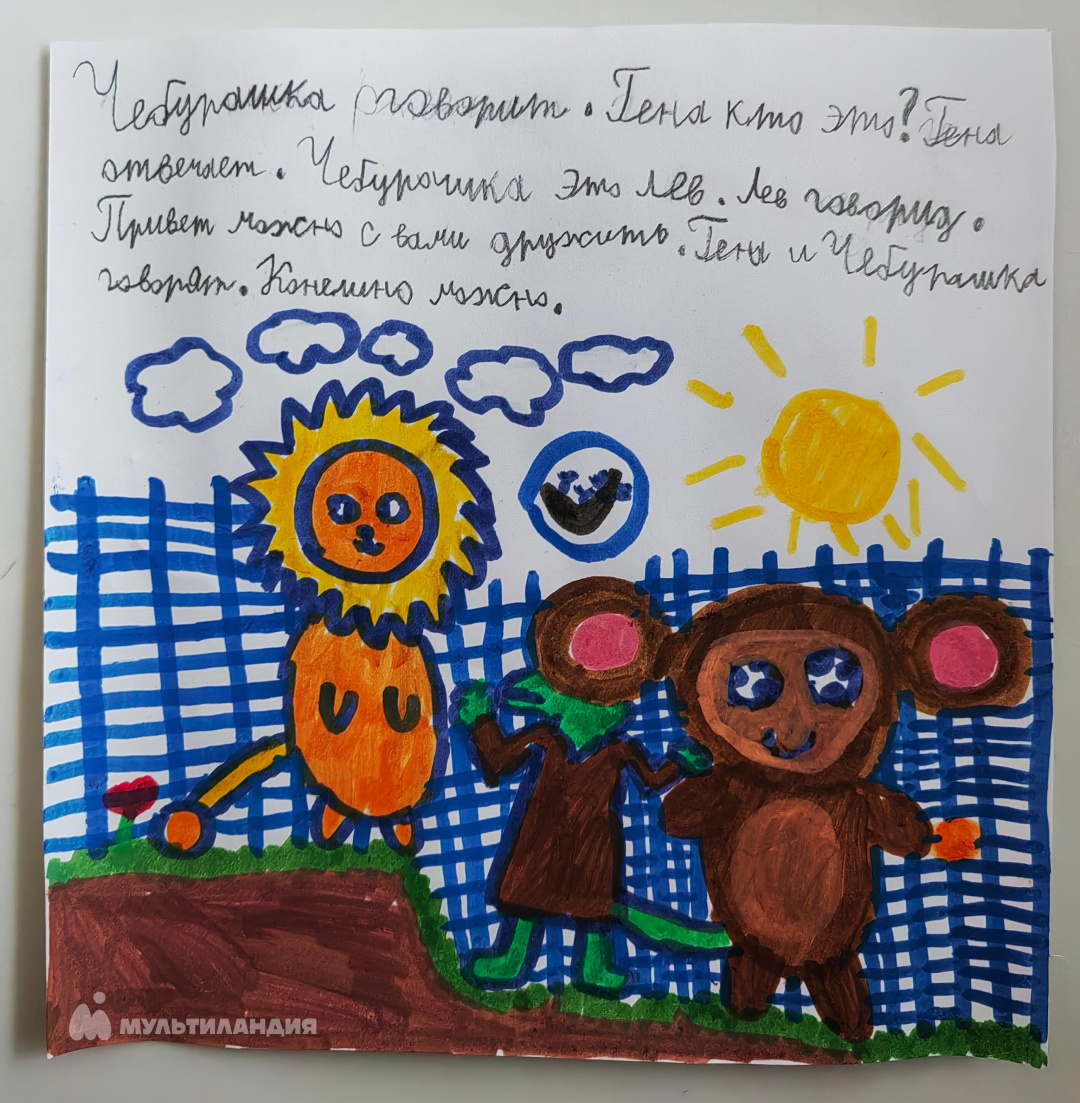 Чебурашка говорит. Гена кто это? Гена
отвечает. Чебурашка это лев. Лев говорид.
Привет можно с вами дружить. Гена и Чебурашка
говорят. Конешно можно.
МУЛЬТИЛАНДИЯ